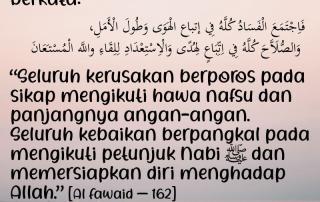 berkata:
فَاِجْتَمَعَ الْفَسَادُ كُلُّهُ فِي إتباع الْهَوَى وَطُولَ الْأَمَلِ،
وَالصَّلَاحَ كُلَّهُ فِي اِتِّبَاعِ هُدَى وَالْاِسْتِعْدَادِ لِلِقَاءِ واللَّه الْمُسْتَعَانَ
“Seluruh kerusakan berporos pada
sikap mengikuti hawa nafsu dan
panjangnya angan-angan.
Seluruh kebaikan berpangkal pada
mengikuti petunjuk Nabi ﷺ dan
memersiapkan diri menghadap
Allah.” [Al fawaid – 162]